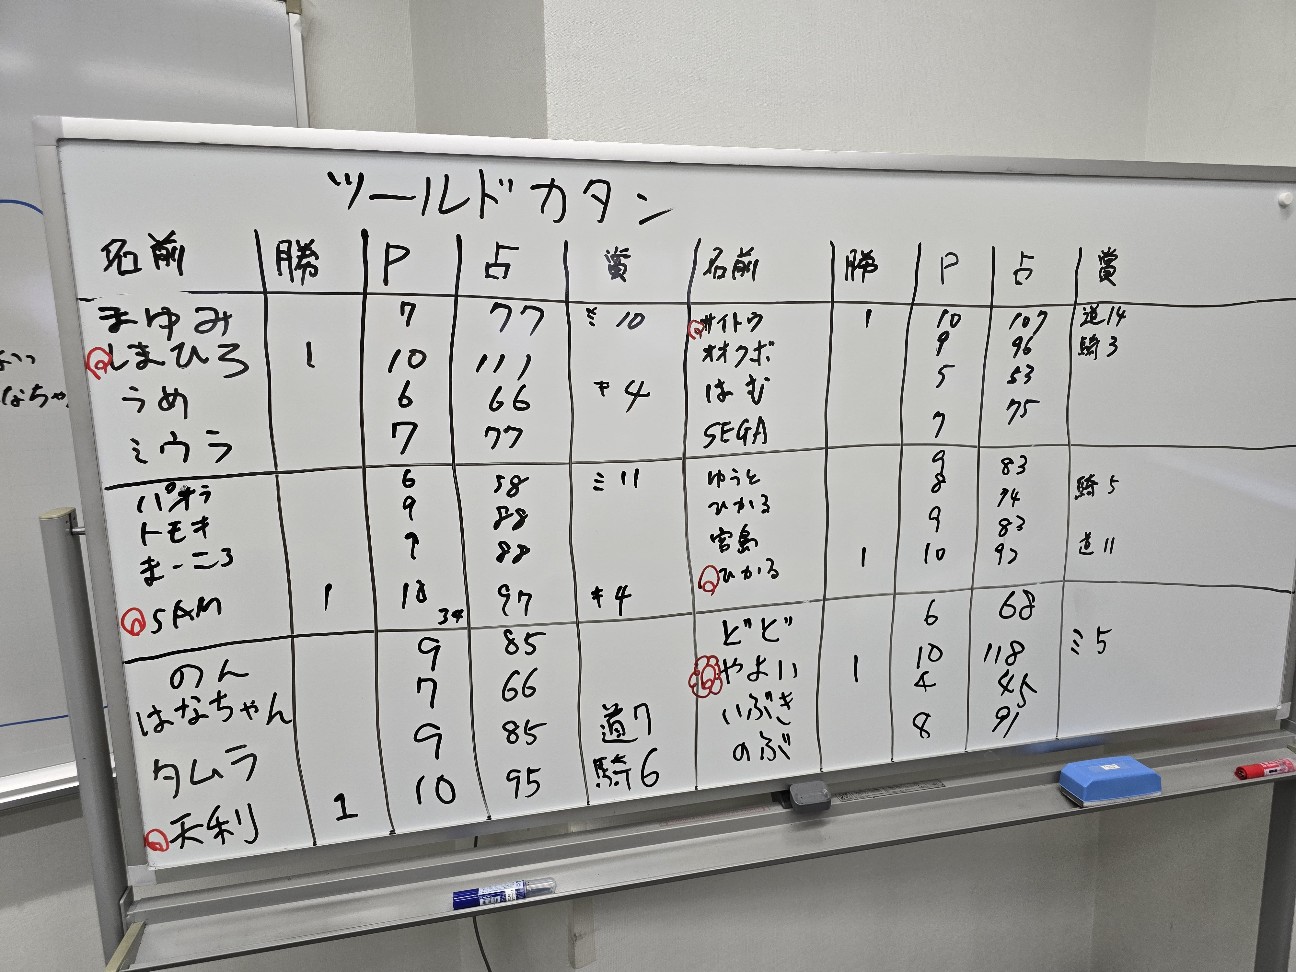 ツールドカタン
名前 勝 P 占 賞
まゆみ 7 77 ミ10
しまひろ 1 10 111
うめ 6 66 キ4
ミウラ 7 77
パオラ 6 58 ミ11
トモキ 9 88
まーこ3 88
SAM 1 10 34 97 キ4
のん 9 85
はなちゃん 7 66
タムラ 9 85 道7
天利 1 10 95 騎6
名前 勝 P 占 賞
サイトウ 1 10 107 道14
オオクボ 9 96 騎3
はむ 5 53
SEGA 7 75
ゆうと 9 83
ひかる 8 74 騎5
宮島 9 83
ひかる 1 10 92 道11
どど 6 68
やよい 1 10 118 ミ5
いぶき 4 45
のぶ 8 91